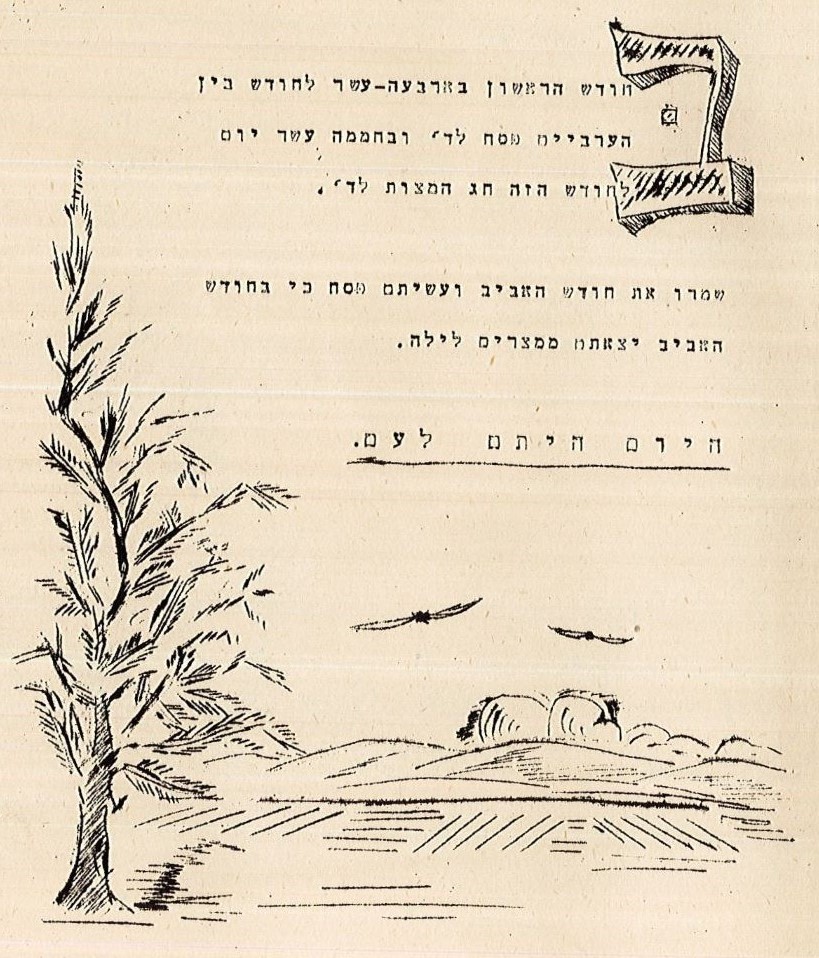 בחודש הראשון בארבעה-עשר לחודש בין
הערביים פסח לד׳ ובחממה עשר יום
לחודש הזה חג המצות לד׳.
שמרו את חודש האביב ועשיתם פסח כי בחודש
האביב יצאתם ממצרים לילה.
היום הייתם לעם.